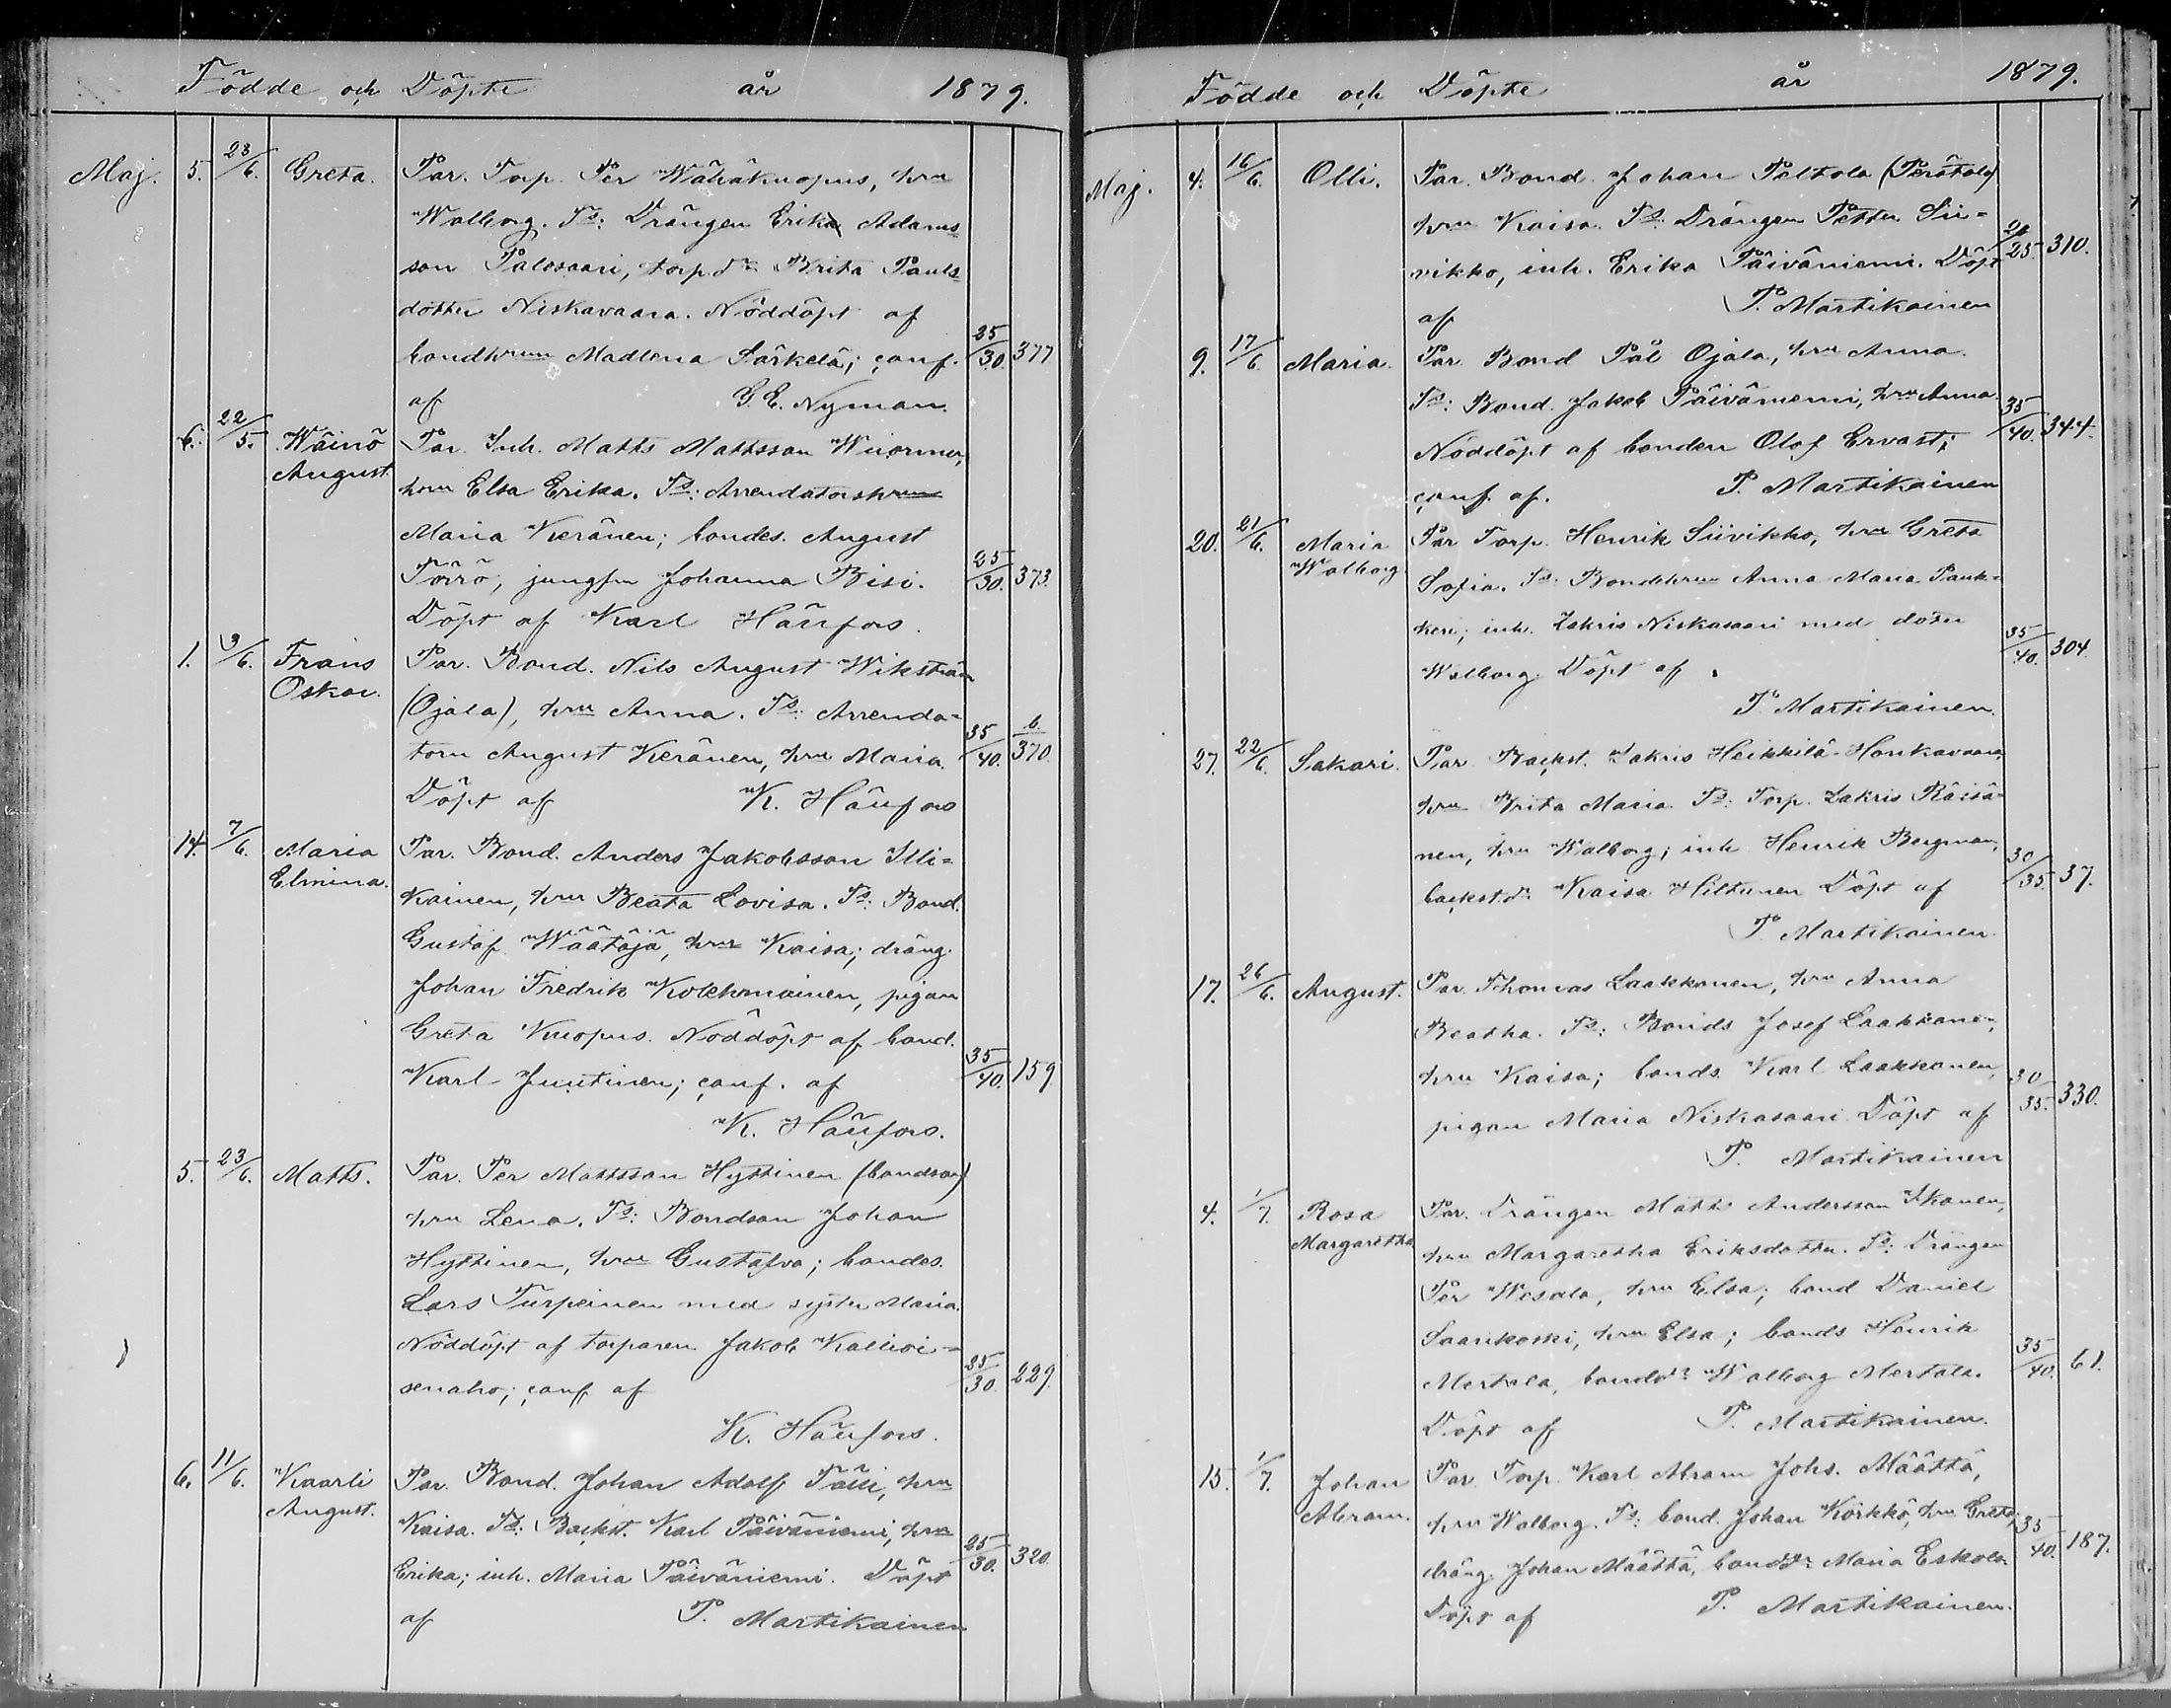 Födde och Döpte år 1879.
Maj. 5. 23/6. Greta. Par. Torp. Per Wähäkuopus, hru
Walborg. Ts: Drängen Erik Adams-
son Palosaari, torp.dr Brita Pauls-
dotter Niskavaara. Nöddöpt af
bondhrun Madlena Särkelä; conf. 25/30. 377
af G. E. Nyman.
6. 22/5. Wäinö August Par. Inh. Matts Mattsson Wuorma,
hru Elsa Erika. Ts: Arrendatorshrun
Maria Keränen; bondes. August
Törrö, jungfru Johanna Bisi. 25/30. 373.
Döpt af Karl Häufors.
1. 9/6. Frans Oskar. Par. Bond. Nils August Wikström
(Ojala), hru Anna. Ts: Arrenda-
torn August Keränen, hru Maria. 35/40. b. 370.
Döpt af K. Häufors
14. 7/6. Maria Elmina. Par. Bond. Anders Jakobsson Illi-
kainen, hru Beata Lovisa. Ts: Bond.
Gustaf Wäätäjä, hru Kaisa; dräng.
Johan Fredrik Kolehmainen, pigan
Greta Kuopus. Nöddöpt af bond.
Karl Juntinen; conf. af 35/40. 159.
K. Häufors.
5. 23/6. Matts. Par. Per Mattsson Hyttinen (bondson)
hru Lena. Ts: Bondson Johan
Hyttinen, hru Gustafva; bondes.
Lars Turpeinen med syster Maria.
Nöddöpt af torparen Jakob Kallioi-
senaho; conf af 25/30. 229.
K. Häufors.
6. 11/6. Kaarli August. Par. Bond. Johan Adolf Tälli, hru
Kaisa. Ts: Backst. Karl Päiväniemi, hru
Erika; inh. Maria Päiväniemi. Döpt 25/30. 320.
af P. Martikainen
Födde och Döpte år 1879.
Maj. 4. 16/6. Olli. Par. Bond. Johan Paltola (Perätalo)
hru Kaisa. Ts: Drängen Petter Sii-
vikko, inh. Erika Päiväniemi. Döpt 20/25. 310.
af P. Martikainen
9. 17/6. Maria. Par. Bond Pål Ojala, hru Anna.
Ts: Bond. Jakob Päiväniemi, hru Anna.
Nöddöpt af bonden Olof Ervasti; 35/40. 344.
conf. af. P. Martikainen
20. 21/6. Maria Walborg. Par Torp. Henrik Siivikko, hru Greta
Sofia. Ts: Bondehrun Anna Maria Pauk-
keri; inh. Zakris Niskasaari med dotter
Walborg. Döpt af 35/40. 304.
P. Martikainen.
27. 22/6. Sakari. Par. Backst. Zakris Heikkilä-Honkavaara,
hru Brita Maria. Ts: Torp. Zakris Räisä-
nen, hru Walborg; inh Henrik Bergman,
backst.dr Kaisa Hiltunen Döpt af 30/35. 37.
P. Martikainen.
17. 26/6. August. Par. Thomas Laakkonen, hru Anna
Beatha. Ts: Bonds Josef Laakkonen,
hru Kaisa; bonds. Karl Laakkonen,
pigan Maria Niskasaari Döpt af 30/35. 330.
P. Martikainen
4. 1/7. Rosa Margaretha Par. Drängen Matts Andersson Ikonen,
hru Margaretha Eriksdotter. Ts: Drängen
Per Wesala, hru Elsa; bond Daniel
Saarikoski, hru Elsa; bonds Henrik
Mertala, bonddr Walborg Mertala. 35/40. 61.
Döpt af P. Martikainen.
15. 1/7. Johan Abram. Par. Torp. Karl Abram Johs. Määttä,
hru Walborg. Ts: bond. Johan Körkkö, hru Greta;
dräng. Johan Määttä, bonddr Maria Eskola. 35/40. 187.
Döpt af P. Martikainen.